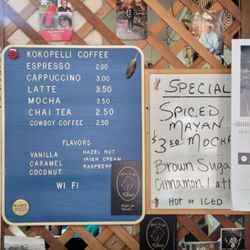 KOKOPELLI COFFEE
ESPRESSO 2.00
CAPPUCCINO 3.00
LATTE 3.50
MOCHA 3.50
CHAI TEA 2.50
COWBOY COFFEE 2.50
FLAVORS
VANILLA HAZEL NUT
CARAMEL IRISH CREAM
COCONUT RASPBERRY
WI FI
SPECIAL
SPICED
MAYAN
$3.50 MOCHA
Brown Sugar
Cinnamon Latt
HOT or ICED